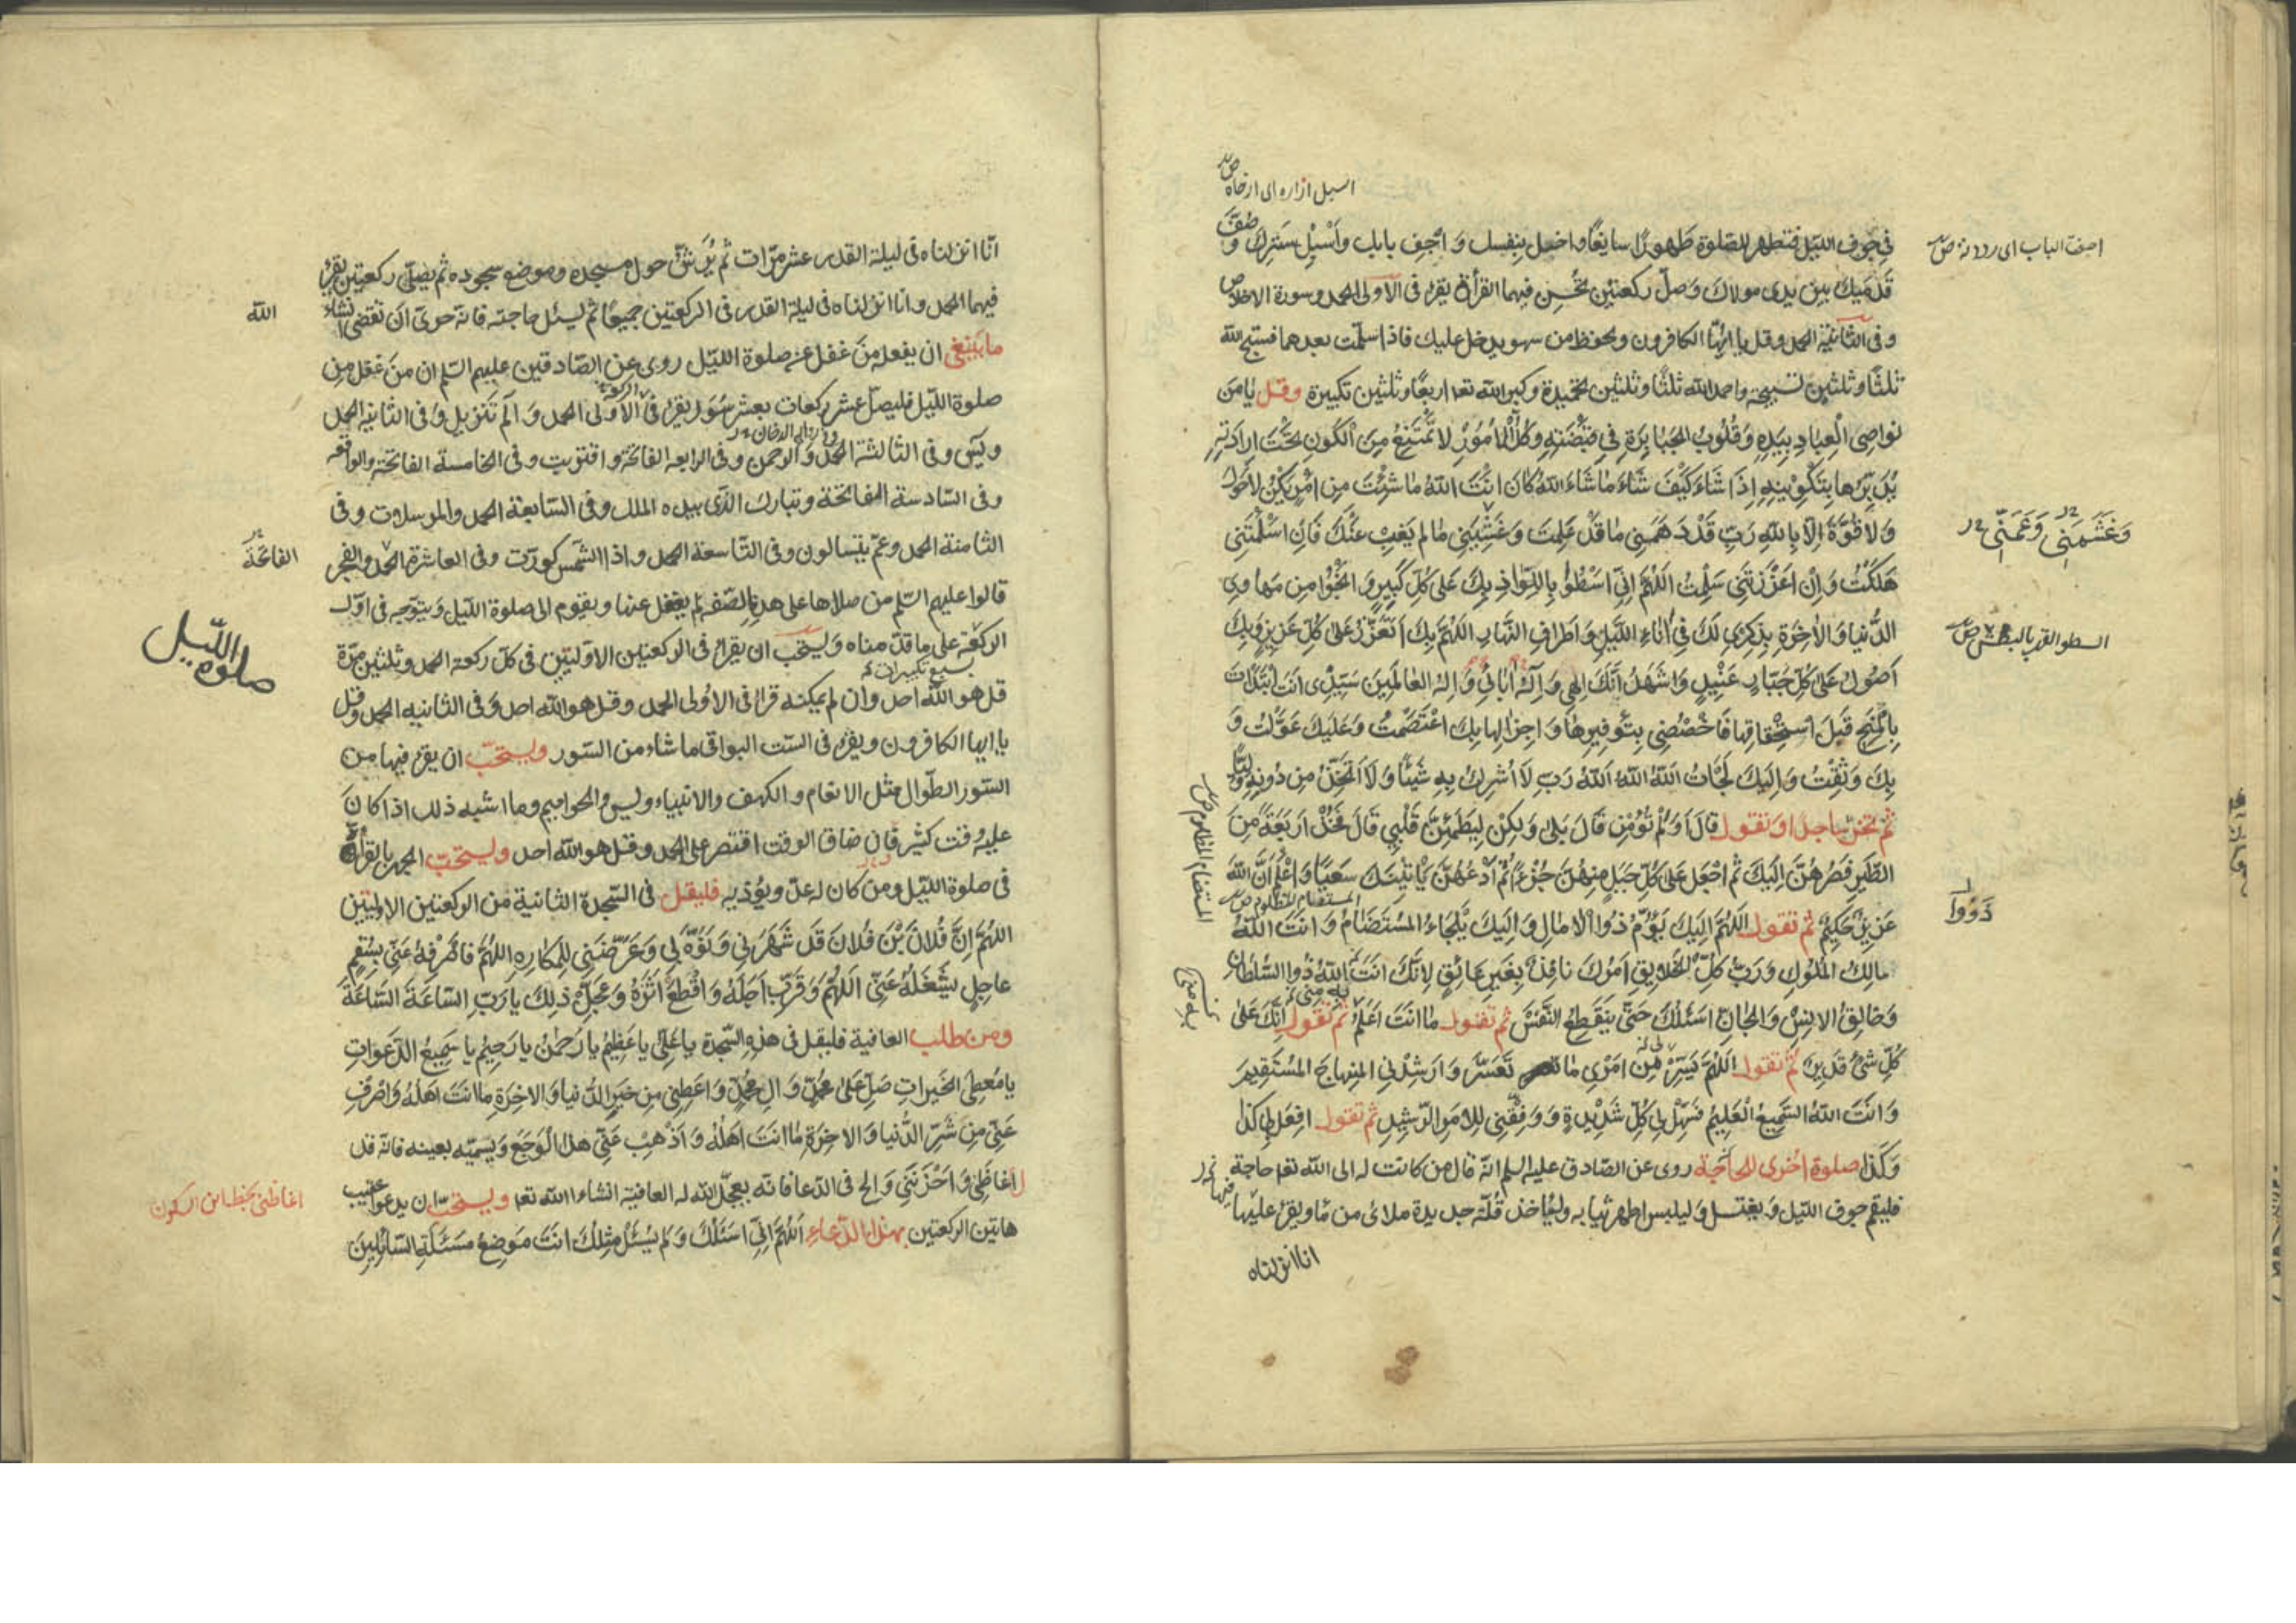 اسبل ازاره ای ارخاه ص
فِي جوف الليل فتطهر للصّلوة طَهورًا سابغًا واخل بِنفسك وَ اَجِفِ بابك وأَسْبِل سَترك وَصُفَّ
اجفت الباب ای رددته ص
قَدمَيك بين يدی مولاك وَصلّ ركعتين تُحْسِن فيهما القرأة يقرء فی الاولی الحمد وسورة الاخلاص
وفی الثانية الحمد وقل يا ايّها الكافرون وتحفظ من سهو يدخل عليك فاذا سلّمت بعدهما فسبّح الله
ثلثًا وثلثين تسبيحة واحمد الله ثلثًا وثلثين تحميدة وكبر الله تعا اربعًا وثلثين تكبيرة وقل يا مَن
نواصی الْعِبادِ بِيَدِهِ وَقُلُوبُ الجَبابِرَةِ فِي قَبْضَتِهِ وَكلُّ الْاُمُوْرِ لا تَمْتَنِعُ مِنَ الْكَونِ تَحْتَ اِرادَتِهِ
يُدَبِّرُها بِتَكْوِيْنِهِ اِذَا شَاءَ كَيْفَ شَاءَ مَا شَاءَ اللهُ كَانَ اَنْتَ اللهُ مَا شِئْتَ مِن اَمْرٍ يَكُنْ لاحَوْلَ
وَلا قُوَّةَ اِلّا بِاللهِ رَبِّ قَدْ دَهَمَنِی مَا قَدْ عَلِمتَ وَغَشِيَنِی مَا لم يَغِبْ عَنْكَ فَاِن اَسْلَمْتَنِی
وَغَشَّمَنِی وَغَمَّنِی
هَلَكْتُ وَاِنْ اَعْزَزتَنِی سَلِمْتُ اللّهُمَّ اِنِّی اَسْطُوْا بِاللِّواذِ بِكَ عَلی كُلِّ كَبِيرٍ وَ اَنْجُوْا مِن مَهاوِی
الدُّنيا وَالاخِرَةِ بِذِكرِی لَكَ فِی اٰناءِ اللَّيلِ وَاَطرافِ النَّهارِ اللّهُمَّ بِكَ اَتَعَزَّزُ عَلیٰ كُلِّ عَزيزٍ وَبِكَ
السطو القهر بالبطش ص
اَصُولُ عَلیٰ كُلِّ جَبّارٍ عَنِيدٍ وَاَشهَدُ اَنَّكَ اِلهِی وَاِلٰهُ اٰبائِی وَاِلهُ العالَمِينَ سَيِّدِی اَنتَ ابتَدَأتَ
بِالْمِنَحِ قَبلَ استِحْقاقِها فَاخْصُصْنِی بِتَوفِيرِها وَاجزالِها بِكَ اعْتَصَمْتُ وَعَلَيكَ عَوَّلتُ وَ
بِكَ وَثِقْتُ وَاِلَيكَ لَجَأتُ اللهُ اللهُ اَللهُ رَبّی لاَ اُشرِكُ بِهِ شَيئًا وَلاَ اَتَّخِذُ مِن دُونِهِ وَلِيًّا
ثم تخرّ ساجدًا وتقول قالَ اَوَلَمْ تُؤْمِن قَالَ بَلی وَلكِنْ لِيَطْمَئِنَّ قَلْبِی قَالَ فَخُذْ اَربَعَةً مِنَ
الطَّيرِ فَصُرْهُنَّ اِلَيكَ ثُمَّ اجْعَل عَلی كُلِّ جَبَلٍ مِنهُنَّ جُزْءًا ثُمَّ ادْعُهُنَّ يَأْتِينَكَ سَعيًا وَاعْلَمْ اَنَّ اللهَ
المستضام المظلوم ص
عَزيزٌ حَكِيمٌ ثم تقول اللّهُمَّ اِلَيكَ يَؤُمُّ ذَوُوا الْآمالِ وَاِلَيكَ يَلجَاءُ المُسْتَضَامُ وَانتَ اللهُ
ذَوُوا
مالِكُ المُلُوكِ وَرَبُّ كلِّ الخلايِقِ اَمرُكَ نافِذٌ بِغَيرِ عائِقٍ لِاَنَّكَ اَنتَ اللهُ ذُوا السُّلطان
وَخالِقُ الانِسِ وَالجانِّ اَسئَلُكَ حَتّی يَنقَطِعَ النَّفَسُ ثم تقول مَا اَنتَ اَعْلَمُ ثم تقول اِنَّكَ عَلیٰ
كُلِّ شَیْءٍ قَدِيرٌ ثم تقول اللّهُمَّ يَسِّرْ مِن اَمْرِی مَا تَعَسَّرَ وَاَرشِدْنِی المِنهاجَ المُستَقِيمَ
وَاَنتَ اللهُ السَّمِيعُ الْعَلِيمُ فَسَهِّلْ لِی كُلَّ شَدِيدَةٍ وَوَفِّقْنِی لِلاَمرِ الرَّشِيدِ ثم تقول افعَل بِی كذا
وَكَذا صلوة اخری للحاجة روی عن الصّادق عليه السلم انّه قال من كانت له الی الله تعا حاجة
فليقم جوف الليل وَيغتسل وَليلبس اطهر ثيابه وليأخذ قُلّة جديدة ملائ من مّاء ويقرء عليها
انا انزلناه
انّا انزلناه فی ليلة القدر عشر مرّات ثم يَرُشّ حول مسجده وموضع سجوده ثم يصلّی ركعتين يقرء
فيهما الحمد وانا انزلناه فی ليلة القدر فی الركعتين جميعًا ثم ليسئل حاجته فانّه حریّ ان تقضی انشاء
الله
ما ينبغی ان يفعله من غفل عن صلوة الليل روی عن الصّادقين عليهم السّلم ان من غفل من
صلوة الليل فليصلّ عشر ركعات بعشر سُوَر يقرء فی الاُولی الحمد وَ الم تنزيل وَ فی الثانية الحمد
ويٰس وفی الثالثة الحمد والرحمن وفی الرابعة الفاتحة واقتربت وفی الخامسة الفاتحة والواقعة
وفی السّادسة الفاتحة وتبارك الّذی بيده الملك وفی السّابعة الحمد والمرسلات وفی
الثامنة الحمد وعمّ يتسالون وفی التّاسعة الحمد واذا الشمس كوّرت وفی العاشرة الحمد والفجر
الفاتحة
قالوا عليهم السّلم من صلاها علی هذه الصّفة لم يغفل عنها ويقوم الی صلوة الليل ويتوجه فی اوّل
صلوه اللّيل
الركعة علی ما قدّمناه وَيستحب ان يقراء فی الركعتين الاوّلتين فی كلّ ركعة الحمد وثلثين مرّة
بسبع تكبيرات
قل هو اللّه احد وان لم يمكنه قراء فی الاُولی الحمد وقل هو الله احد وَفی الثانيه الحمد وقل
يا ايها الكافرون ويقرء فی السّت البواقی ما شاء من السّور ويستحبّ ان يقرء فيها من
السّور الطّوال مثل الانعام والكهف والانبياء ويس والحواميم وما اشبه ذلك اذا كان
عليه وقت كثير فان ضاق الوقت اقتصر علی الحمد وقل هو الله احد ويستحبّ الجهر بالقراءة
فی صلوة الليل ومن كان له عدوّ يؤذيه فليقل فی السّجدة الثانية من الركعتين الاوليتين
اللّهُمَّ اِنَّ فُلانَ بْنَ فُلانَ قَد شَهَرَنِی وَنَوَّهَ بِی وَعَرَّضَنِی لِلمَكارِهِ اللّهُمَّ فَاصْرِفهُ عَنِّی بِسُقمٍ
عاجِلٍ يَشْغَلُهُ عَنِّی اللّهُمَّ وَقَرِّب اَجَلَهُ وَاقْطَع اَثَرَهُ وَعَجِّل ذلِكَ يا رَبِّ السّاعَةَ السّاعَةَ
ومن طلب العافية فليقل فی هذه السّجدة يا عَلیُّ يا عَظِيمُ يا رَحمنُ يا رَحِيمُ يا سَمِيعُ الدّعَواتِ
يا مُعطِیَ الخَيراتِ صَلِّ عَلی مُحَمَّدٍ وَالِ مُحَمَّدٍ وَاَعطِنِی مِن خَيرِ الدُّنيا وَالاخِرَةِ ما اَنتَ اَهلُهُ وَاصْرِف
عَنِّی مِن شَرِّ الدُّنيا وَالاخِرَةِ ما اَنتَ اَهلُهُ وَ اَذْهِبْ عَنِّی هذا الْوَجَعَ وَيسمّيه بعينه فانّه قد
اَغاظَنِی وَاَحْزَنَنِی وَالح فی الدّعا فانّه يعجّل الله له العافية انشاء الله تعا ويستحبّ ان يدعوا عقيب
هاتين الركعتين بهذا الدّعاء اللّهُمَّ اِنِّی اَسئَلُكَ وَلَم يُسْئَلْ مِثلُكَ اَنتَ مَوضِعُ مَسئَلَةِ السّائِلِينَ